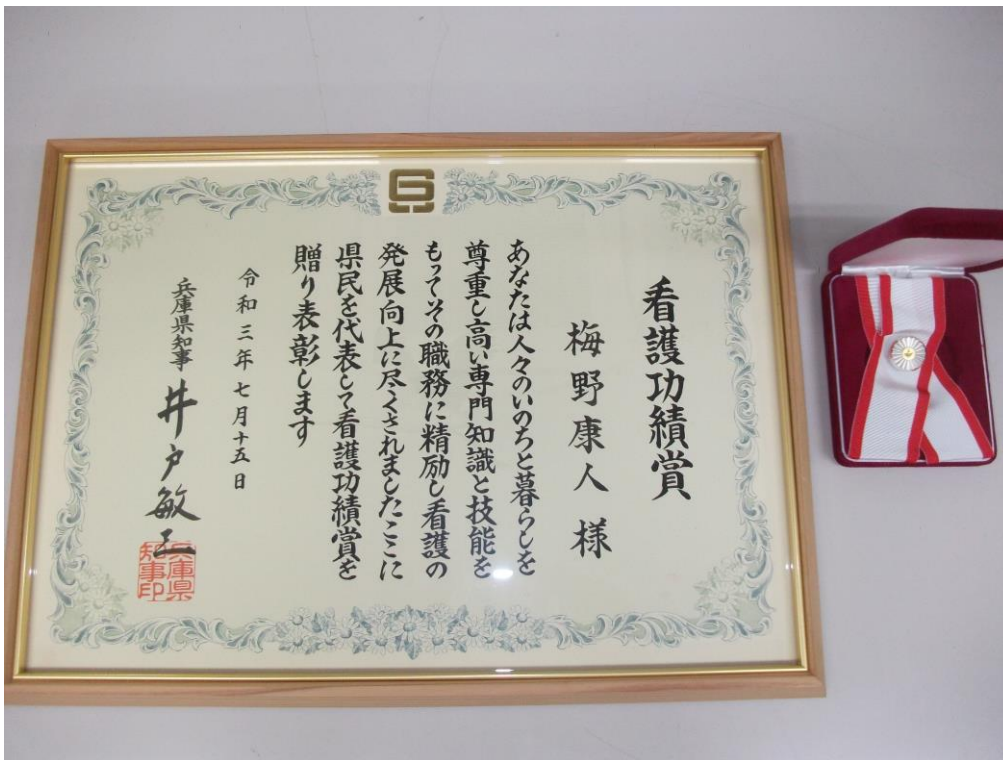 看護功績賞
梅野康人様
あなたは人々のいのちと暮らしを
尊重し高い専門知識と技能を
もってその職務に精励し看護の
発展向上に尽くされましたここに
県民を代表して看護功績賞を
贈り表彰します
令和三年七月十五日
兵庫県知事 井戸敏三
兵庫県
知事印